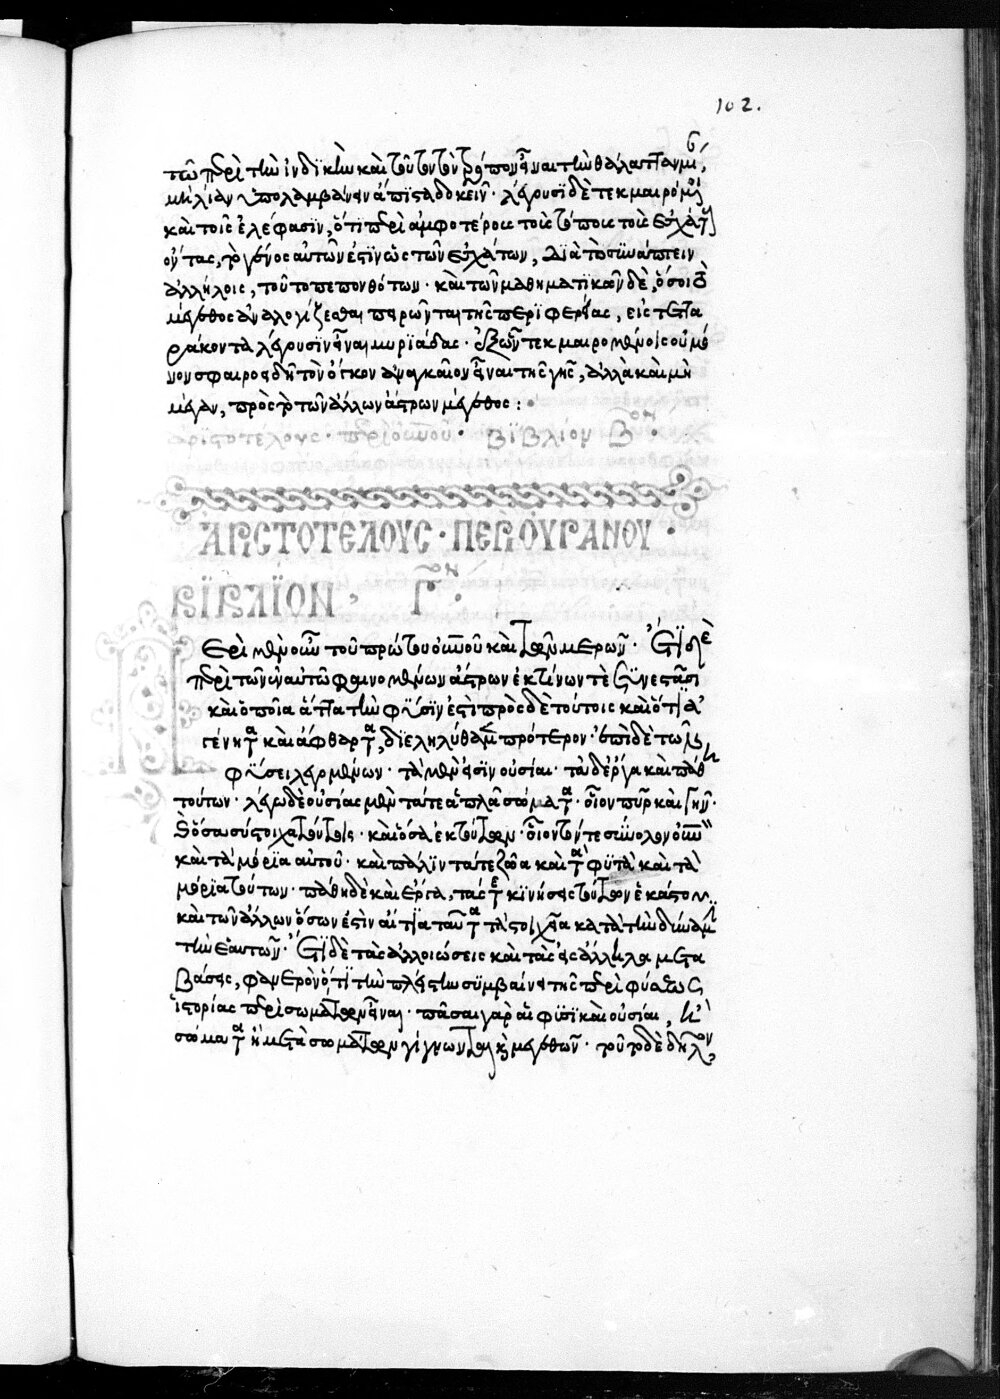 102.
τῶ περὶ τὴν ἰνδικὴν καὶ τοῦτον τὸν τρόπον εἶναι τὴν θάλατταν μίαν,
μὴ λίαν ὑπολαμβάνειν ἄπιστα δοκεῖν· λέγουσι δὲ τεκμαιρόμενοι
καὶ τοῖς ἐλέφασιν, ὅτι περὶ ἀμφοτέρους τοὺς τόπους τοὺς ἐσχάτους
ὄντας, τὸ γένος αὐτῶν ἐστὶν ὡς τῶν ἐσχάτων, διὰ τὸ συνάπτειν
ἀλλήλοις, τοῦτο πεπονθότων· καὶ τῶν μαθηματικῶν δὲ, ὅσοι τὸ
μέγεθος ἀναλογίζεσθαι πειρῶνται τῆς περιφερείας, εἰς τετταράκοντα
λέγουσιν εἶναι μυριάδας· ἐξ ὧν τεκμαιρομένοις οὐ μόνον
σφαιροειδῆ τὸν ὄγκον ἀναγκαῖον εἶναι τῆς γῆς, ἀλλὰ καὶ μὴ
μέγαν, πρὸς τὸ τῶν ἄλλων ἄστρων μέγεθος:
ἀριστοτέλους· περὶ οὐρανοῦ· βιβλίον βον·
ἈΡΙΣΤΟΤΈΛΟΥΣ· ΠΕΡῚ ΟΥΡΑΝΟΥ·
ΒΪΒΛΪΟΝ, Γον·
Περὶ μὲν οὖν τοῦ πρώτου οὐρανοῦ καὶ τῶν μερῶν· ἔτι δὲ
περὶ τῶν ἐν αὐτῶ φαινομένων ἄστρων ἐκ τίνων τὲ συνεστᾶσι
καὶ ὁποῖα ἄττα τὴν φύσιν ἐστὶ πρὸς δὲ τούτοις καὶ ὅτι ἀγένητα
καὶ ἄφθαρτα, διεληλύθαμεν πρότερον· ἐπεὶ δὲ τῶν
φύσει λεγομένων· τὰ μὲν ἐστὶν οὐσίαι· τὰ δ' ἔργα καὶ πάθη
τούτων· λέγω δὲ οὐσίας μὲν τά τε ἁπλᾶ σώματα· οἷον πῦρ καὶ γῆν·
καὶ ὅσα σύστοιχα τούτοις· καὶ ὅσα ἐκ τούτων· οἷον τόν τε σύνολον οὐρανὸν
καὶ τὰ μόρια αὐτοῦ· καὶ πάλιν τά τε ζῶα καὶ τὰ φυτὰ καὶ τὰ
μόρια τούτων· πάθη δὲ καὶ ἔργα, τάς τε κινήσεις τούτων ἑκάστου
καὶ τῶν ἄλλων ὅσων ἐστὶν αἴτια ταῦτα κατὰ τὴν δύναμιν
τὴν ἑαυτῶν· ἔτι δὲ τὰς ἀλλοιώσεις καὶ τὰς εἰς ἄλληλα μεταβάσεις,
φανερὸν ὅτι τὴν πλείστην συμβαίνει τῆς περὶ φύσεως
ἱστορίας περὶ σωμάτων εἶναι· πᾶσαι γὰρ αἱ φυσικαὶ οὐσίαι, ἢ
σώματα ἢ μετὰ σωμάτων γίγνονται καὶ μεγεθῶν· τοῦτο δὲ δῆλον,